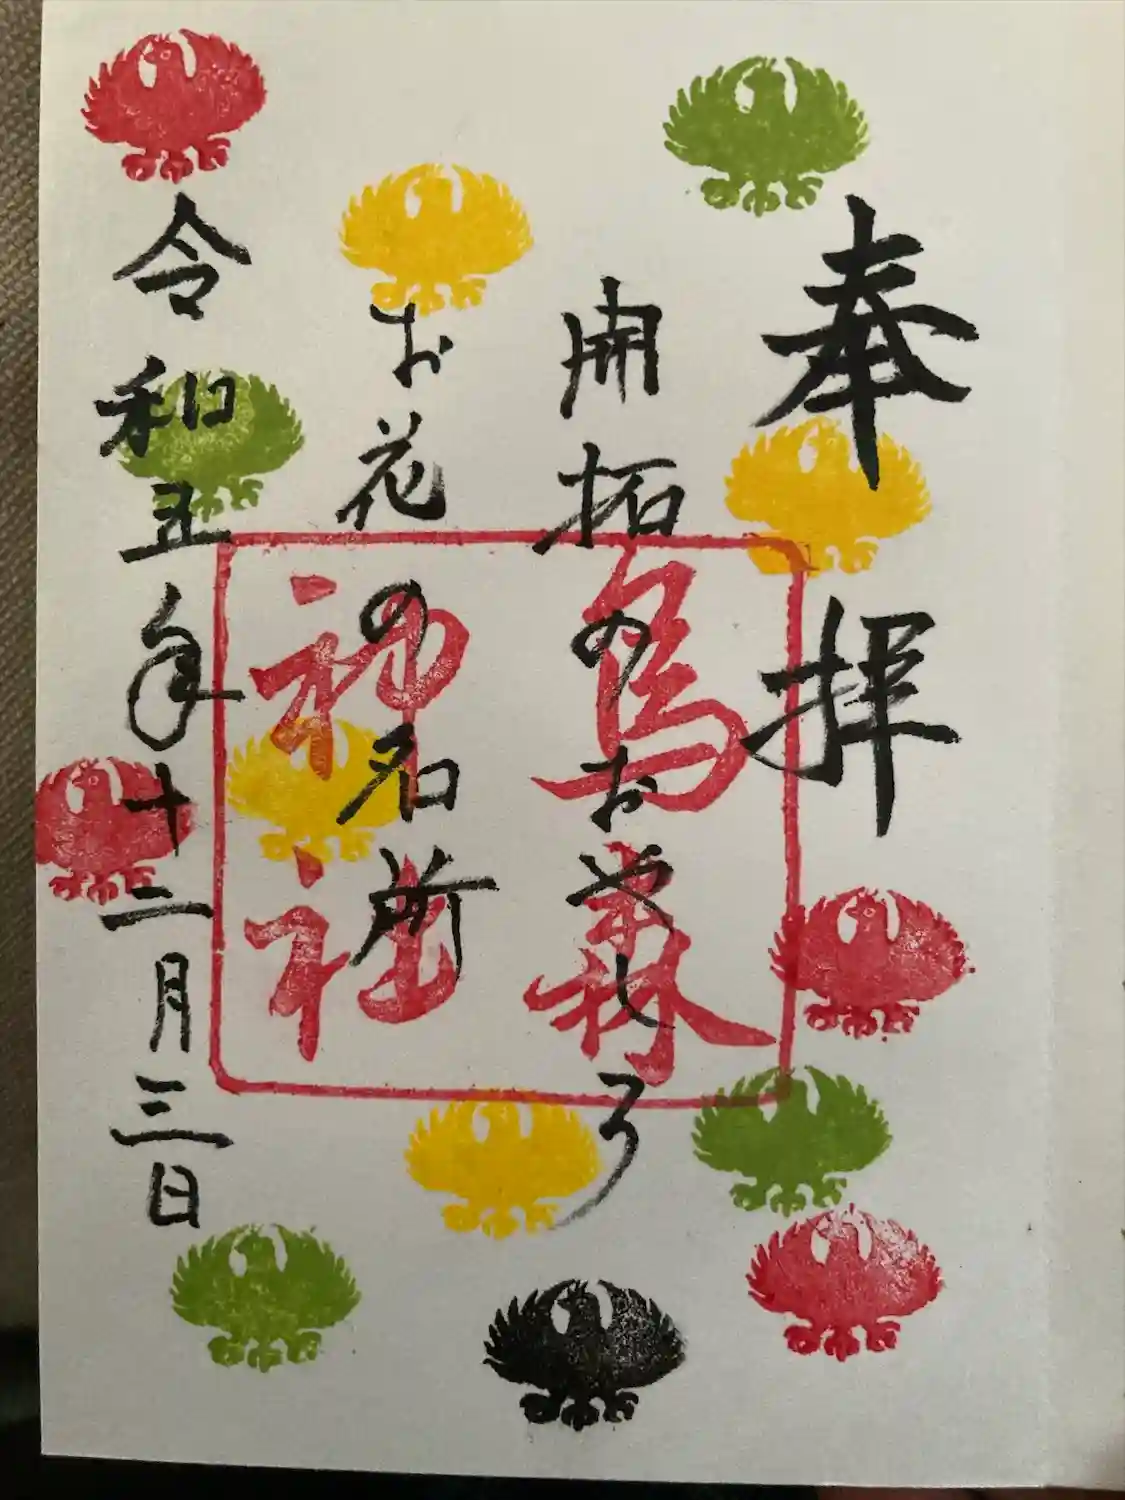 奉拝
開拓のおやしろ
烏森
お花の名所
神社
令和五年十二月三日